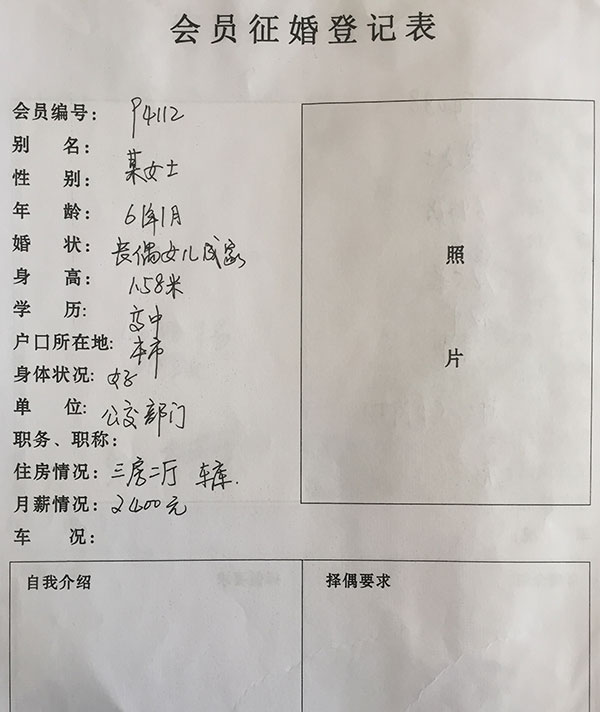 会员征婚登记表
会员编号: P4112
别 名:
性 别: 某女士
年 龄: 61年1月
婚 状: 丧偶女儿成家
身 高: 1.58米
学 历: 高中
户口所在地: 本市
身体状况: 好
单 位: 公交部门
职务、职称:
住房情况: 三房二厅 车库.
月薪情况: 2400元
车 况:
照
片
自我介绍
择偶要求